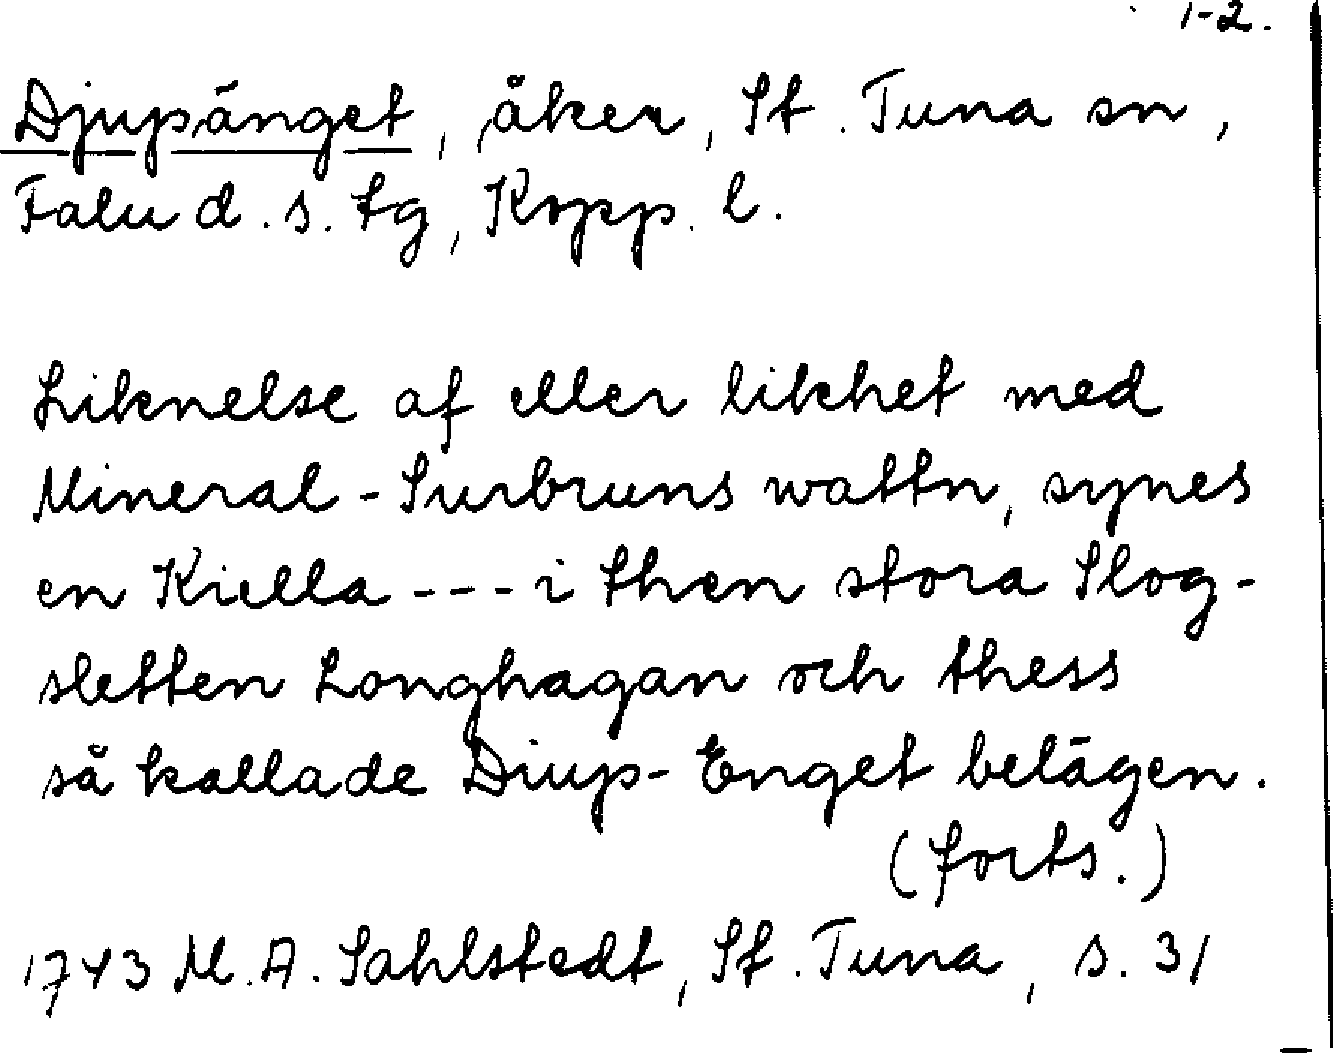 1-2.
Djupänget, åker, St. Tuna sn,
Falu d. s. tg, Kopp. l.
Liknelse af eller likhet med
Mineral-Surbruns wattn, synes
en Kiella --- i then stora Slog-
sletten Longhagan och thess
så kallade Diup-Enget belägen.
(forts.)
1743 M. A. Sahlstedt, St. Tuna, s. 31